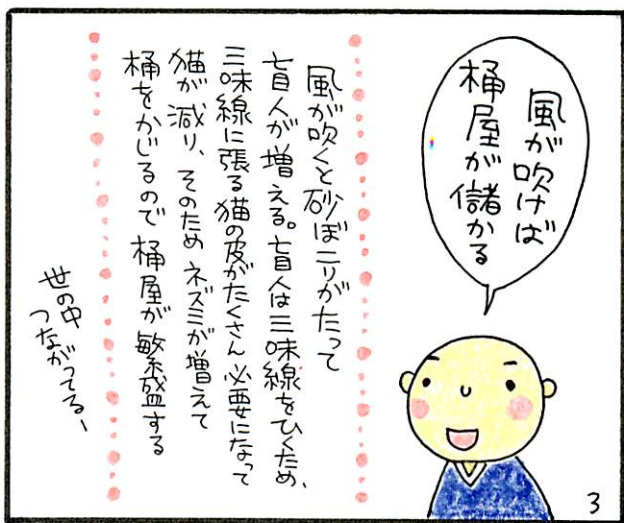 風が吹けば
桶屋が儲かる
風が吹くと砂ぼこりがたって
盲人が増える。盲人は三味線をひくため、
三味線に張る猫の皮がたくさん必要になって
猫が減り、そのためネズミが増えて
桶をかじるので桶屋が繁盛する
世の中
つながってるー
3